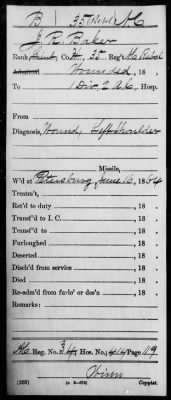 B 35 (Rebel)
J. R. Baker
Rank Lieut, Co. H, 35 Reg't Rebel
Admitted Wounded, 18
To 1 Div. 2 A.C. Hosp.
From
Diagnosis, Wound, Left Shoulder
Missile,
W'd at Petersburg June 16, 1864
Treatm't,
Ret'd to duty , 18 .
Transf'd to I. C. , 18 .
Transf'd to , 18 .
Furloughed , 18 .
Deserted , 18 .
Disch'd from service , 18 .
Died , 18 .
Re-adm'd from furlo' or des'n , 18 .
Remarks:
Reg. No. Hos. No. Page 119
Copyist.